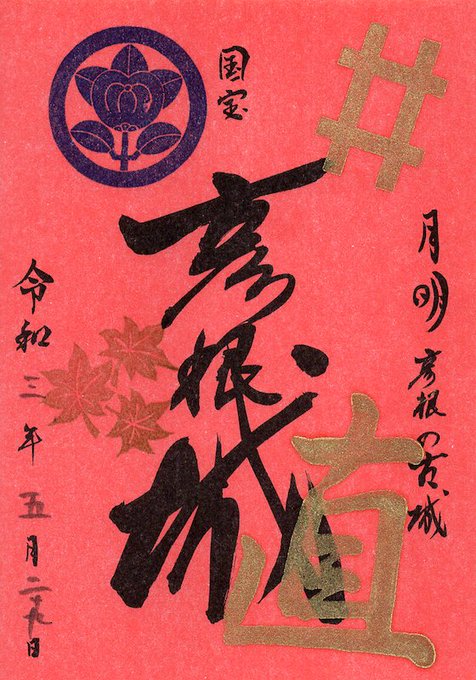 井
月明 彦根の古城
直
国宝
彦根城
令和三年五月二九日